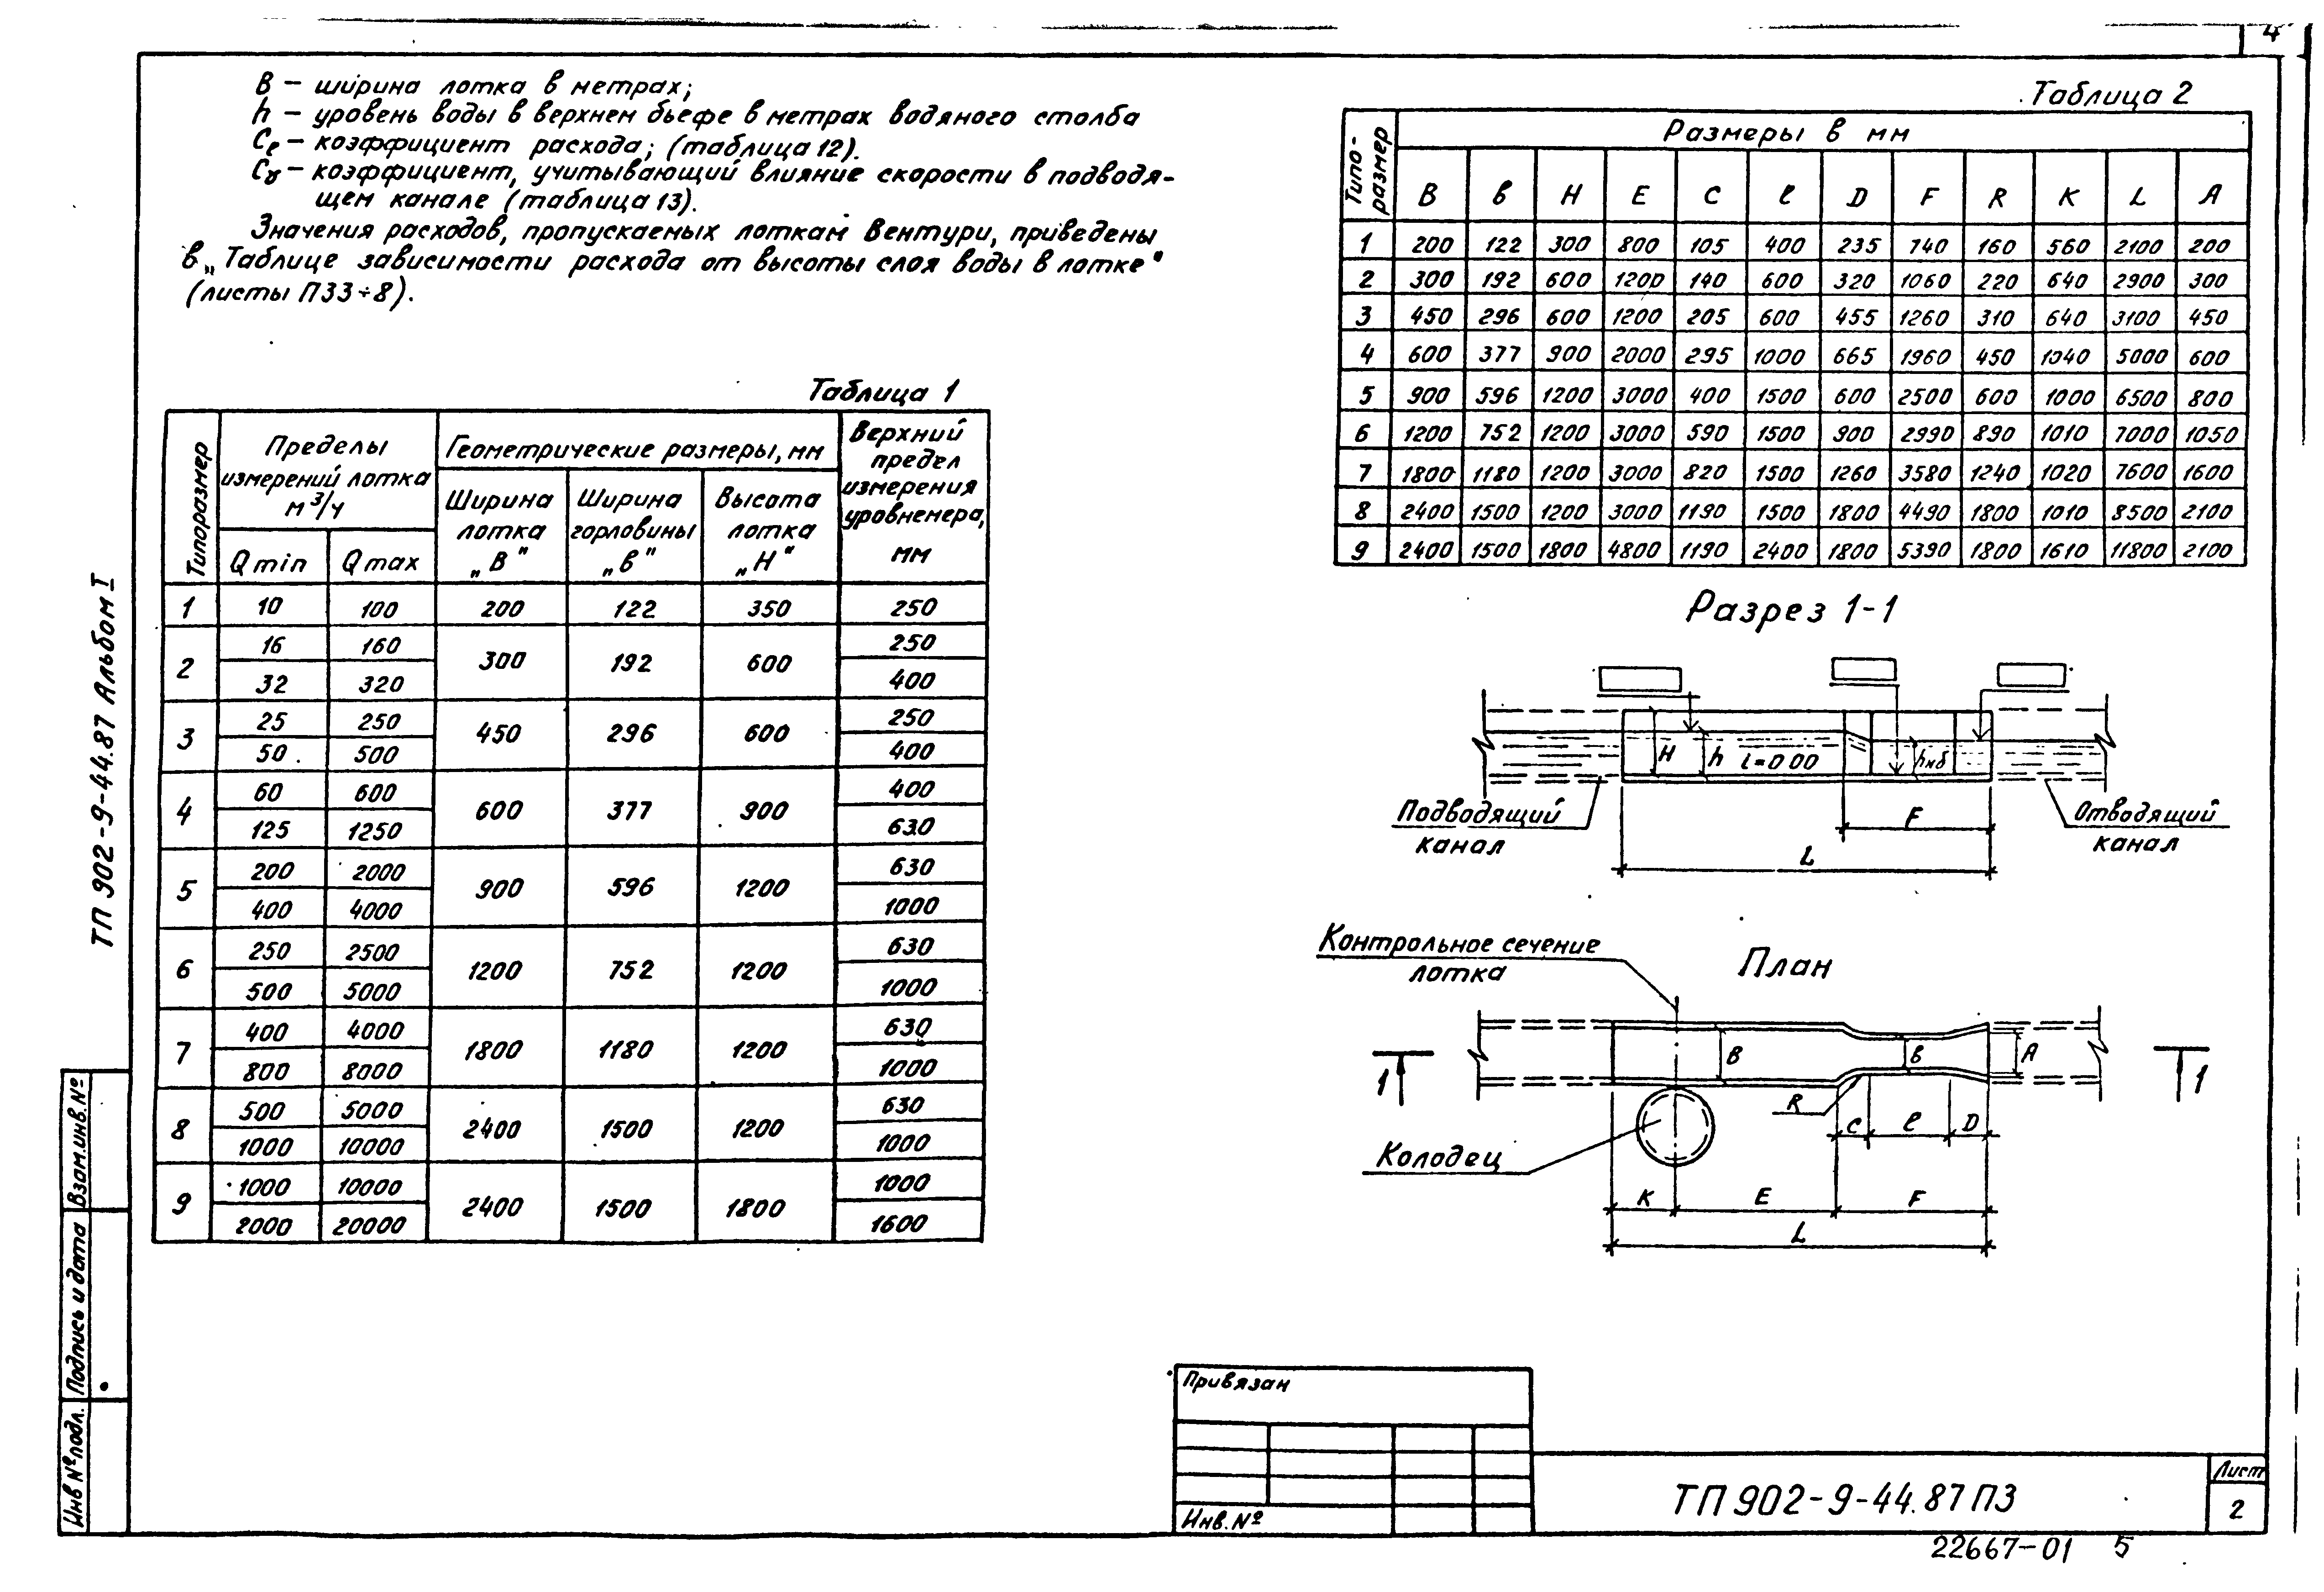 4
В – ширина лотка в метрах;
h – уровень воды в верхнем бьефе в метрах водяного столба
Cе – коэффициент расхода; (таблица 12).
Cγ – коэффициент, учитывающий влияние скорости в подводя-
щем канале (таблица 13).
Значения расходов, пропускаемых лоткам Вентури, приведены
в „Таблице зависимости расхода от высоты слоя воды в лотке"
(листы ПЗ3÷8).
Таблица 1
Типоразмер | Пределы измерений лотка м³/ч | Геометрические размеры, мм | Верхний предел измерения уровнемера, мм
Qmin | Qmax | Ширина лотка „В" | Ширина горловины „в" | Высота лотка „Н"
1 | 10 | 100 | 200 | 122 | 350 | 250
2 | 16 | 160 | 300 | 192 | 600 | 250
32 | 320 | 400
3 | 25 | 250 | 450 | 296 | 600 | 250
50 | 500 | 400
4 | 60 | 600 | 600 | 377 | 900 | 400
125 | 1250 | 630
5 | 200 | 2000 | 900 | 596 | 1200 | 630
400 | 4000 | 1000
6 | 250 | 2500 | 1200 | 752 | 1200 | 630
500 | 5000 | 1000
7 | 400 | 4000 | 1800 | 1180 | 1200 | 630
800 | 8000 | 1000
8 | 500 | 5000 | 2400 | 1500 | 1200 | 630
1000 | 10000 | 1000
9 | 1000 | 10000 | 2400 | 1500 | 1800 | 1000
2000 | 20000 | 1600
Таблица 2
Типо-размер | Размеры в мм
В | в | Н | Е | С | ℓ | D | F | R | К | L | А
1 | 200 | 122 | 300 | 800 | 105 | 400 | 235 | 740 | 160 | 560 | 2100 | 200
2 | 300 | 192 | 600 | 1200 | 140 | 600 | 320 | 1060 | 220 | 640 | 2900 | 300
3 | 450 | 296 | 600 | 1200 | 205 | 600 | 455 | 1260 | 310 | 640 | 3100 | 450
4 | 600 | 377 | 900 | 2000 | 295 | 1000 | 665 | 1960 | 450 | 1040 | 5000 | 600
5 | 900 | 596 | 1200 | 3000 | 400 | 1500 | 600 | 2500 | 600 | 1000 | 6500 | 800
6 | 1200 | 752 | 1200 | 3000 | 590 | 1500 | 900 | 2990 | 890 | 1010 | 7000 | 1050
7 | 1800 | 1180 | 1200 | 3000 | 820 | 1500 | 1260 | 3580 | 1240 | 1020 | 7600 | 1600
8 | 2400 | 1500 | 1200 | 3000 | 1190 | 1500 | 1800 | 4490 | 1800 | 1010 | 8500 | 2100
9 | 2400 | 1500 | 1800 | 4800 | 1190 | 2400 | 1800 | 5390 | 1800 | 1610 | 11800 | 2100
Разрез 1-1
H h i=0.00 hнб
Подводящий
канал
F
L
Отводящий
канал
Контрольное сечение
лотка
План
В в А
1 1
R
С ℓ D
Колодец
К Е F
L
ТП 902-9-44.87 Альбом I
Взам.инв.№
Подпись и дата
Инв №подл.
Привязан
Инв.№
ТП 902-9-44.87 ПЗ
Лист
2
22667-01 5